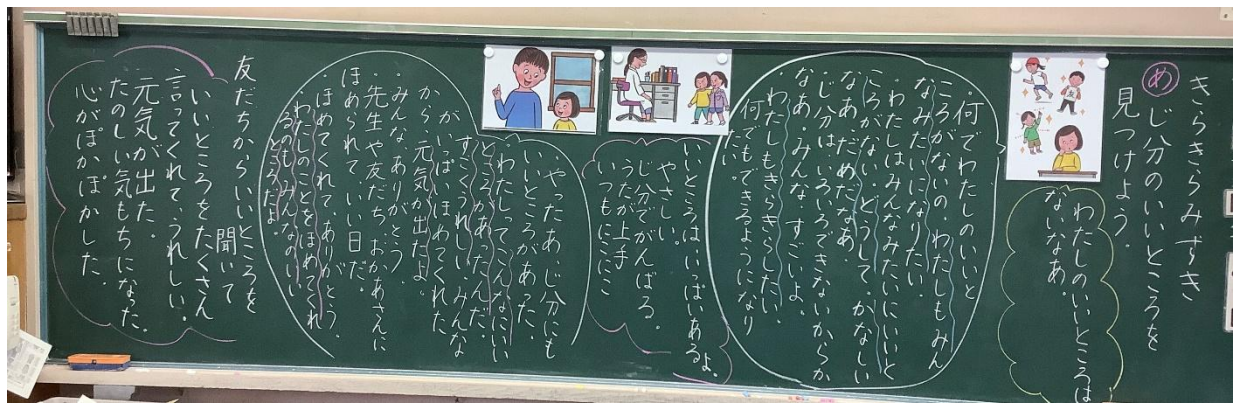 きらきらみずき
め じ分のいいところを
見つけよう。
わたしのいいところは
ないなあ。
・何でわたしのいいと
ころがないの。わたしもみん
なみたいになりたい。
・わたしはみんなみたいにいいと
ころがない。どうして、かなしい
なあ、だめだなあ。
・じ分は、いろいろできないからか
なあ。みんな、すごいよ。
・わたしもきらきらしたい。
・何でもできるようになり
たい。
いいところはいっぱいあるよ。
やさしい。
じ分でがんばる。
うたが上手
いつもにこにこ
・やったあ、じ分にも
いいところがあった。
・わたしってこんなにいい
ところがあったんだ。
すごくうれしい。みんな
がいっぱいほめてくれた
から、元気が出たよ。
・みんな、ありがとう。
・先生や友だち、おかあさんに
ほめられて、いい日だ。
・ほめてくれて、ありがとう。
わたしのことをほめてくれ
るのもみんなのいい
ところだよ。
友だちからいいところを
聞いて
・いいところをたくさん
言ってくれて、うれしい。
元気が出た。
たのしい気もちになった。
心がぽかぽかした。